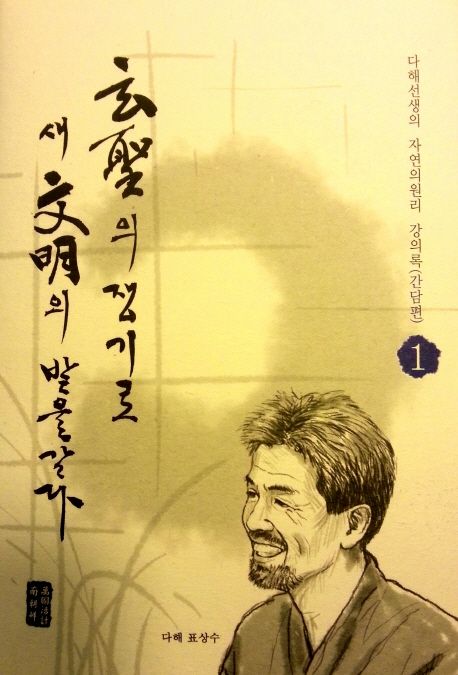 다해선생의 자연의원리 강의록(간담편)
1
玄聖의 쟁기로
새 文明의 밭을갈다
다해 표상수